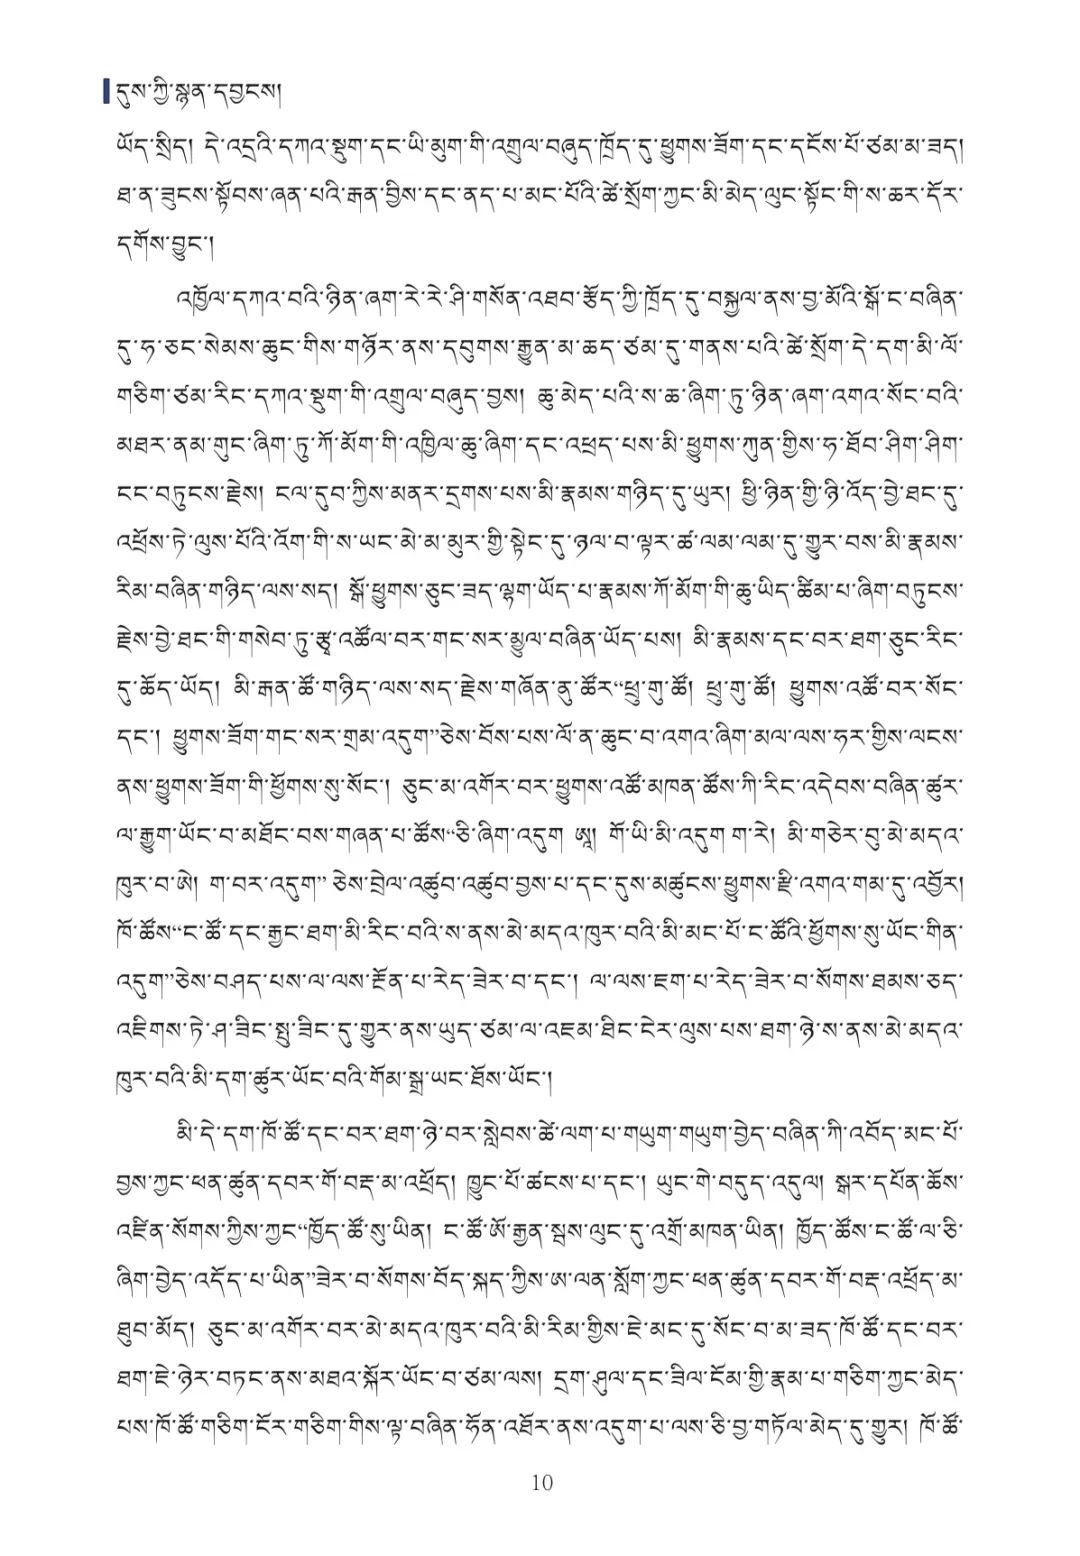 དུས་ཀྱི་སྙན་དབྱངས།
ཡོད་སྲིད། དེ་འདྲའི་དཀའ་སྡུག་དང་ཡི་མུག་གི་འགྲུལ་བཞུད་ཁྲོད་དུ་ཕྱུགས་ཟོག་དང་དངོས་པོ་ཙམ་མ་ཟད།
ཐ་ན་ཟུངས་སྟོབས་ཞན་པའི་རྒན་བྱིས་དང་ནད་པ་མང་པོའི་ཚེ་སྲོག་ཀྱང་མི་མེད་ལུང་སྟོང་གི་ས་ཆར་དོར་
དགོས་བྱུང་།
འཁྱོལ་དཀའ་བའི་ཉིན་ཞག་རེ་རེ་ཤི་གསོན་འཐབ་རྩོད་ཀྱི་ཁྲོད་དུ་བསྐྱལ་ནས་བྱ་མོའི་སྒོ་ང་བཞིན་
དུ་ཧ་ཅང་སེམས་ཆུང་གིས་གཉོར་ནས་དབུགས་རྒྱུན་མ་ཆད་ཙམ་དུ་གནས་པའི་ཚེ་སྲོག་དེ་དག་མི་ལོ་
གཅིག་ཙམ་རིང་དཀའ་སྡུག་གི་འགྲུལ་བཞུད་བྱས། ཆུ་མེད་པའི་ས་ཆ་ཞིག་ཏུ་ཉིན་ཞག་འགའ་སོང་བའི་
མཐར་ནམ་གུང་ཞིག་ཏུ་ཀོ་མོག་གི་འཁྱིལ་ཆུ་ཞིག་དང་འཕྲད་པས་མི་ཕྱུགས་ཀུན་གྱིས་ཧ་ཐོབ་ཤིག་ཤིག་
ངང་བཏུངས་རྗེས། ངལ་དུབ་ཀྱིས་མནར་དྲགས་པས་མི་རྣམས་གཉིད་དུ་ཡུར། ཕྱི་ཉིན་གྱི་ཉི་འོད་བྱེ་ཐང་དུ་
འཕྲོས་ཏེ་ལུས་པོའི་འོག་གི་ས་ཡང་མེ་མ་མུར་གྱི་སྟེང་དུ་ཉལ་བ་ལྟར་ཚ་ལམ་ལམ་དུ་གྱུར་བས་མི་རྣམས་
རིམ་བཞིན་གཉིད་ལས་སད། སྒོ་ཕྱུགས་ཅུང་ཟད་ལྷག་ཡོད་པ་རྣམས་ཀོ་མོག་གི་ཆུ་ཡིད་ཚིམ་པ་ཞིག་བཏུངས་
རྗེས་བྱེ་ཐང་གི་གསེབ་ཏུ་རྩྭ་འཚོལ་བར་གང་སར་མྱུལ་བཞིན་ཡོད་པས། མི་རྣམས་དང་བར་ཐག་ཅུང་རིང་
དུ་ཆོད་ཡོད། མི་རྒན་ཚོ་གཉིད་ལས་སད་རྗེས་གཞོན་ནུ་ཚོར“ཕྲུ་གུ་ཚོ། ཕྲུ་གུ་ཚོ། ཕྱུགས་འཚོ་བར་སོང་
དང་། ཕྱུགས་ཟོག་གང་སར་གྲམ་འདུག”ཅེས་བོས་པས་ལོ་ན་ཆུང་བ་འགའ་ཞིག་མལ་ལས་ཧར་གྱིས་ལངས་
ནས་ཕྱུགས་ཟོག་གི་ཕྱོགས་སུ་སོང་། ཅུང་མ་འགོར་བར་ཕྱུགས་འཚོ་མཁན་ཚོས་ཀི་རིང་འདེབས་བཞིན་ཚུར་
ལ་རྒྱུག་ཡོང་བ་མཐོང་བས་གཞན་པ་ཚོས“ཅི་ཞིག་འདུག ཨཱ། གོ་ཡི་མི་འདུག ག་རེ། མི་གཅེར་བུ་མེ་མདའ་
ཁུར་བ་ཨེ། ག་བར་འདུག” ཅེས་བྲེལ་འཚུབ་འཚུབ་བྱས་པ་དང་དུས་མཚུངས་ཕྱུགས་རྫི་འགའ་གམ་དུ་འབྱོར།
ཁོ་ཚོས“ང་ཚོ་དང་རྒྱང་ཐག་མི་རིང་བའི་ས་ནས་མེ་མདའ་ཁུར་བའི་མི་མང་པོ་ང་ཚོའི་ཕྱོགས་སུ་ཡོང་གིན་
འདུག”ཅེས་བཤད་པས་ལ་ལས་རྔོན་པ་རེད་ཟེར་བ་དང་། ལ་ལས་ཇག་པ་རེད་ཟེར་བ་སོགས་ཐམས་ཅད་
འཇིགས་ཏེ་ཤ་ཟིང་སྤུ་ཟིང་དུ་གྱུར་ནས་ཡུད་ཙམ་ལ་འཇམ་ཐིང་ངེར་ལུས་པས་ཐག་ཉེ་ས་ནས་མེ་མདའ་
ཁུར་བའི་མི་དག་ཚུར་ཡོང་བའི་གོམ་སྒྲ་ཡང་ཐོས་ཡོང་།
མི་དེ་དག་ཁོ་ཚོ་དང་བར་ཐག་ཉེ་བར་སླེབས་ཚེ་ལག་པ་གཡུག་གཡུག་བྱེད་བཞིན་ཀི་འབོད་མང་པོ་
བྱས་ཀྱང་ཕན་ཚུན་དབར་གོ་བརྡ་མ་འཕྲོད། ཁྱུང་པོ་ཚངས་པ་དང་། ཡུང་གེ་བདུད་འདུལ། སྒར་དཔོན་ཆོས་
འཛིན་སོགས་ཀྱིས་ཀྱང“ཁྱོད་ཚོ་སུ་ཡིན། ང་ཚོ་ཨོ་རྒྱན་སྦས་ལུང་དུ་འགྲོ་མཁན་ཡིན། ཁྱོད་ཚོས་ང་ཚོ་ལ་ཅི་
ཞིག་བྱེད་འདོད་པ་ཡིན”ཟེར་བ་སོགས་བོད་སྐད་ཀྱིས་ཨ་ལན་སློག་ཀྱང་ཕན་ཚུན་དབར་གོ་བརྡ་འཕྲོད་མ་
ཐུབ་མོད། ཅུང་མ་འགོར་བར་མེ་མདའ་ཁུར་བའི་མི་རིམ་གྱིས་ཇེ་མང་དུ་སོང་བ་མ་ཟད་ཁོ་ཚོ་དང་བར་
ཐག་ཇེ་ཉེར་བཏང་ནས་མཐའ་སྐོར་ཡོང་བ་ཙམ་ལས། དྲག་ཤུལ་དང་ཟིལ་ངོམ་གྱི་རྣམ་པ་གཅིག་ཀྱང་མེད་
པས་ཁོ་ཚོ་གཅིག་ངོར་གཅིག་གིས་ལྟ་བཞིན་ཧོན་འཐོར་ནས་འདུག་པ་ལས་ཅི་བྱ་གཏོལ་མེད་དུ་གྱུར། ཁོ་ཚོ་
10